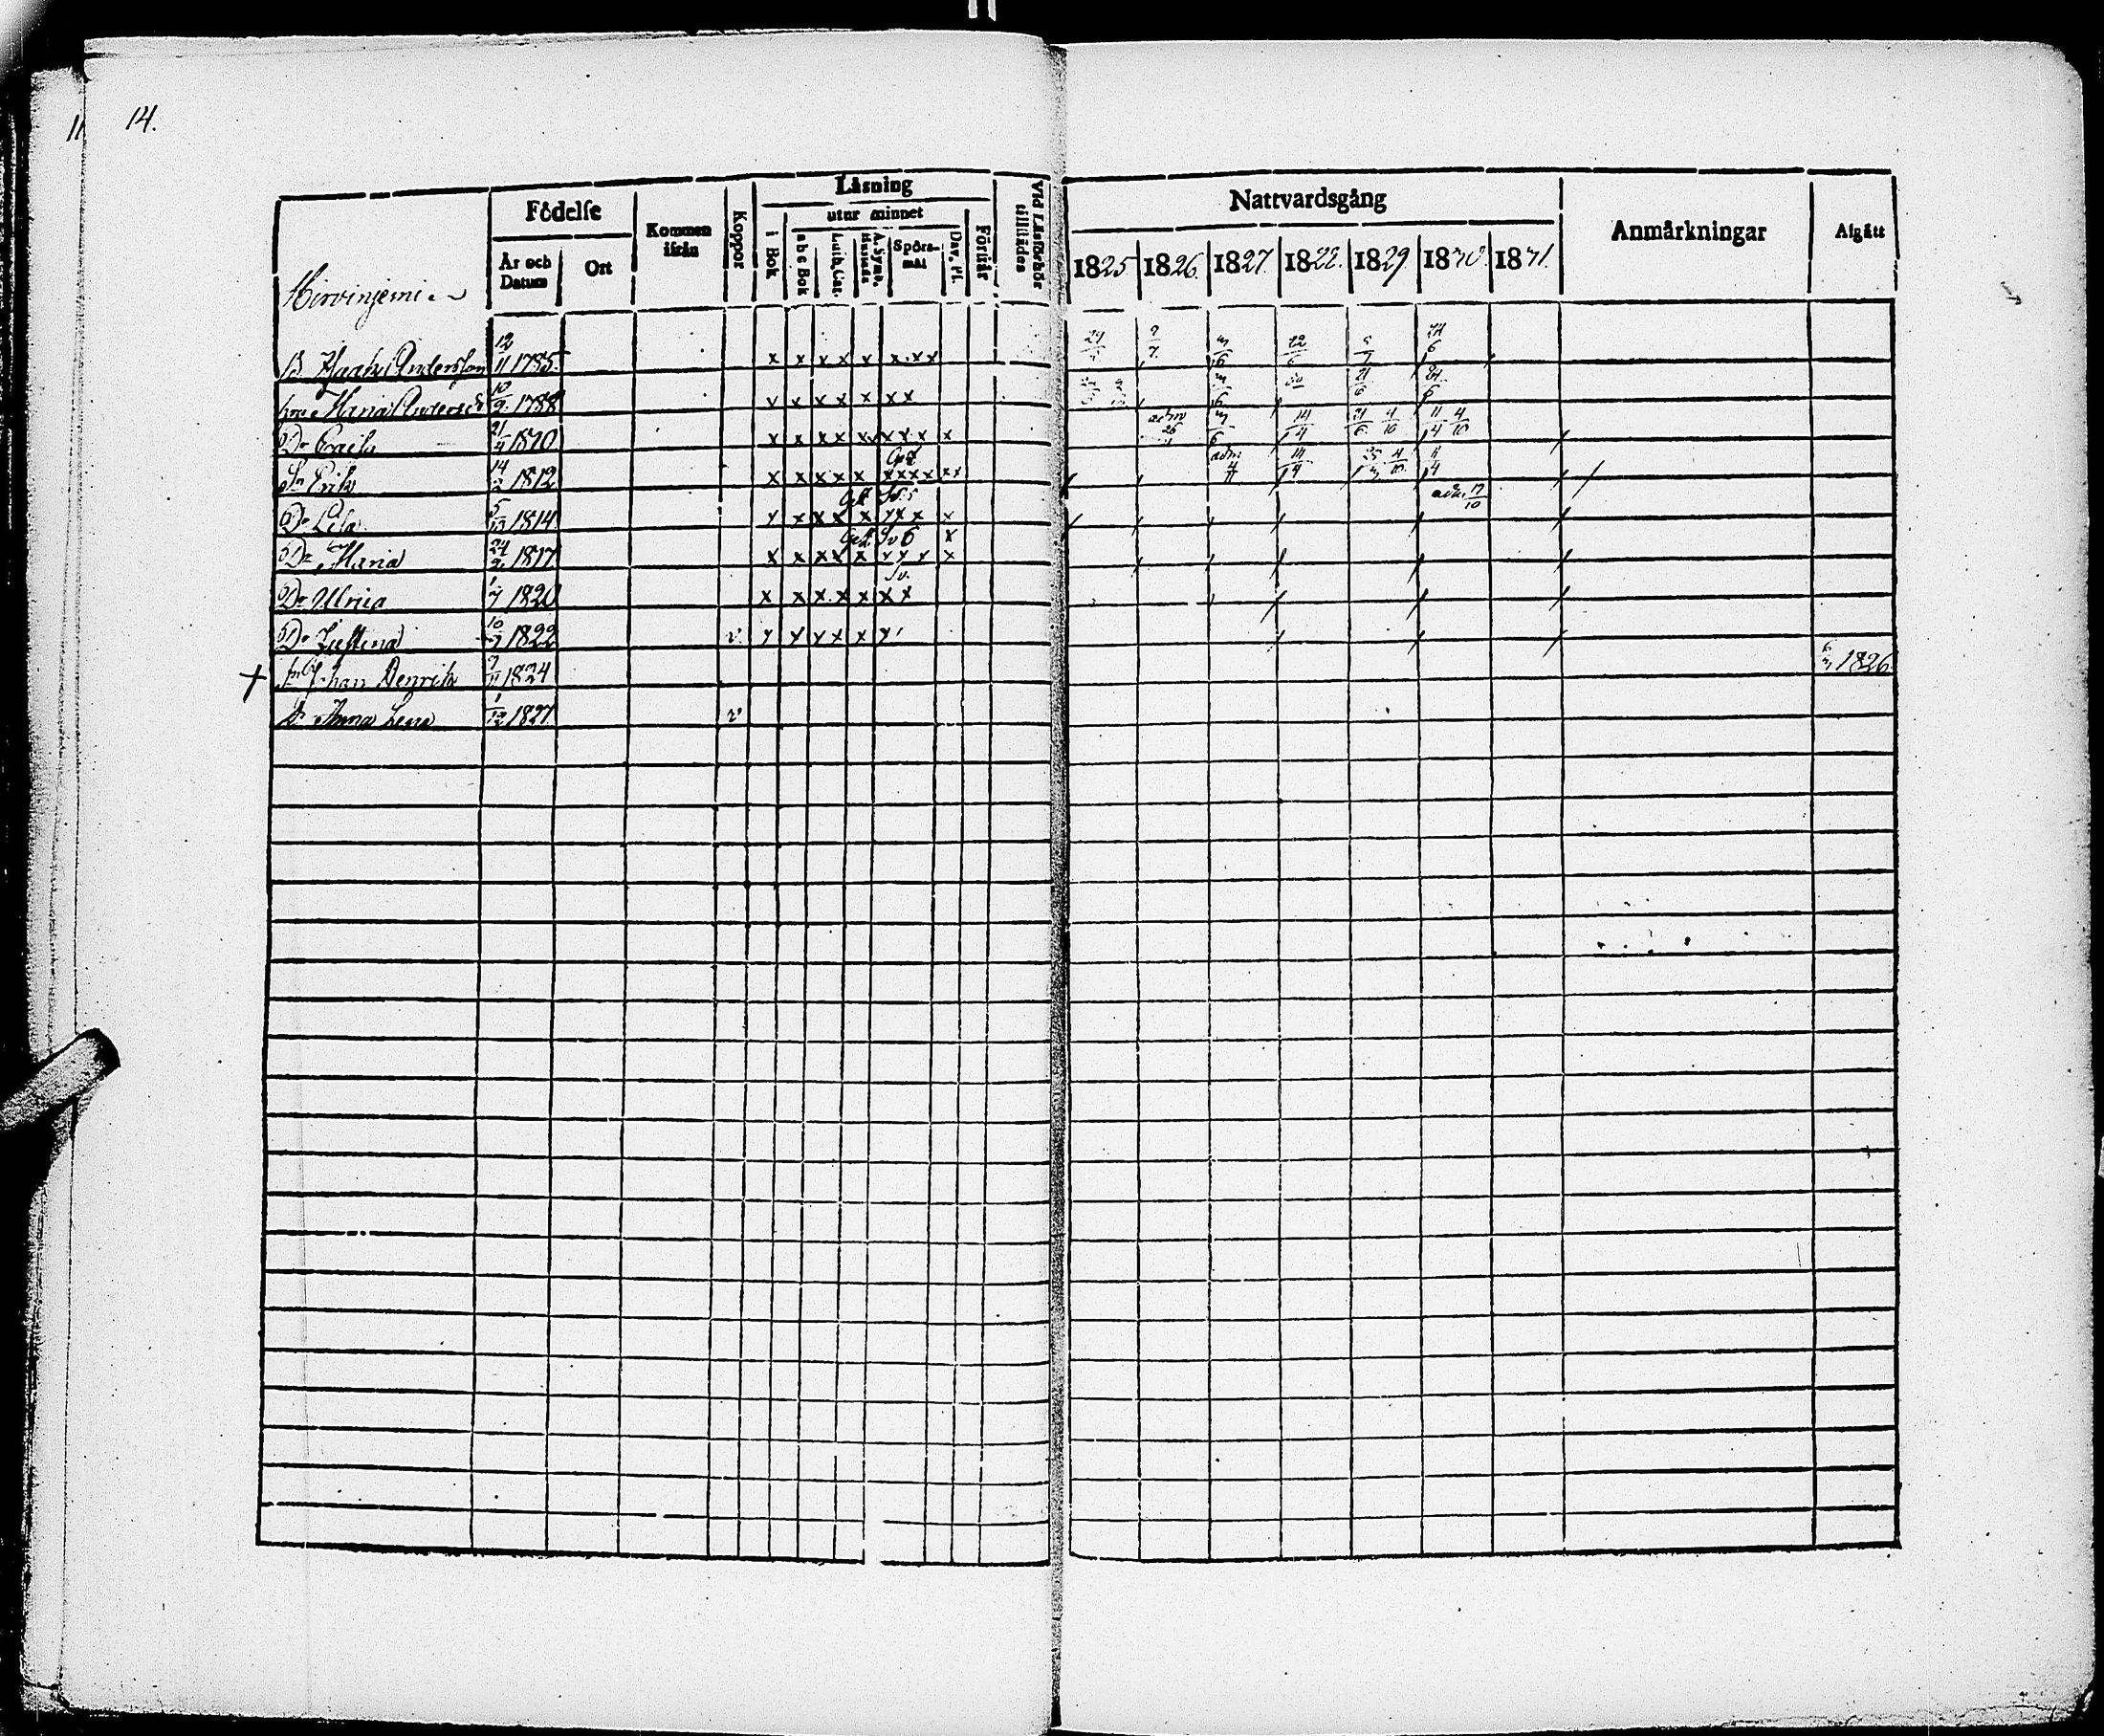 14.
Födelse
Kommen ifrån
Koppor
Läsning
Vid Läsförhör tillstädes
Nattvardsgång
Anmärkningar
Afgått
utur minnet
År och Datum
Ort
i Bok
a b c Bok
Luth. Cat.
A. Symb. Hustafla
Spörsmål
Dav. Ps.
Förstår
1825 1826. 1827. 1828. 1829. 1830. 1831.
Hirvinjemi
B. Isaak Andersson 12/11 1785. x x x x x x x x 2/7 3/6 22/6 24/6
hu Maria Andersd 10/9 1788 x x x x x x x 3/6 21/6 24/6
Dr Cajsa 21/4 1810 x x x x x x x x x adm 3/6 14/4 21/6 4/10 11/4 4/10
Sn Erik 14/2 1812 x x x x x x x x x x x adm 14/4 4/10 11/4
Dr Lisa 5/12 1814 x x x x x x x x x adm 17/10
Dr Maria 24/2 1817 x x x x x x x x x Sv 6
Dr Ulrica 1/7 1820 x x x x x x x Sv.
Dr Justina 10/7 1822 v. x x x x x x
+ Sn Johan Henrik 7/11 1824 6/3 1826.
Dr Anna Lena 1/12 1827. v